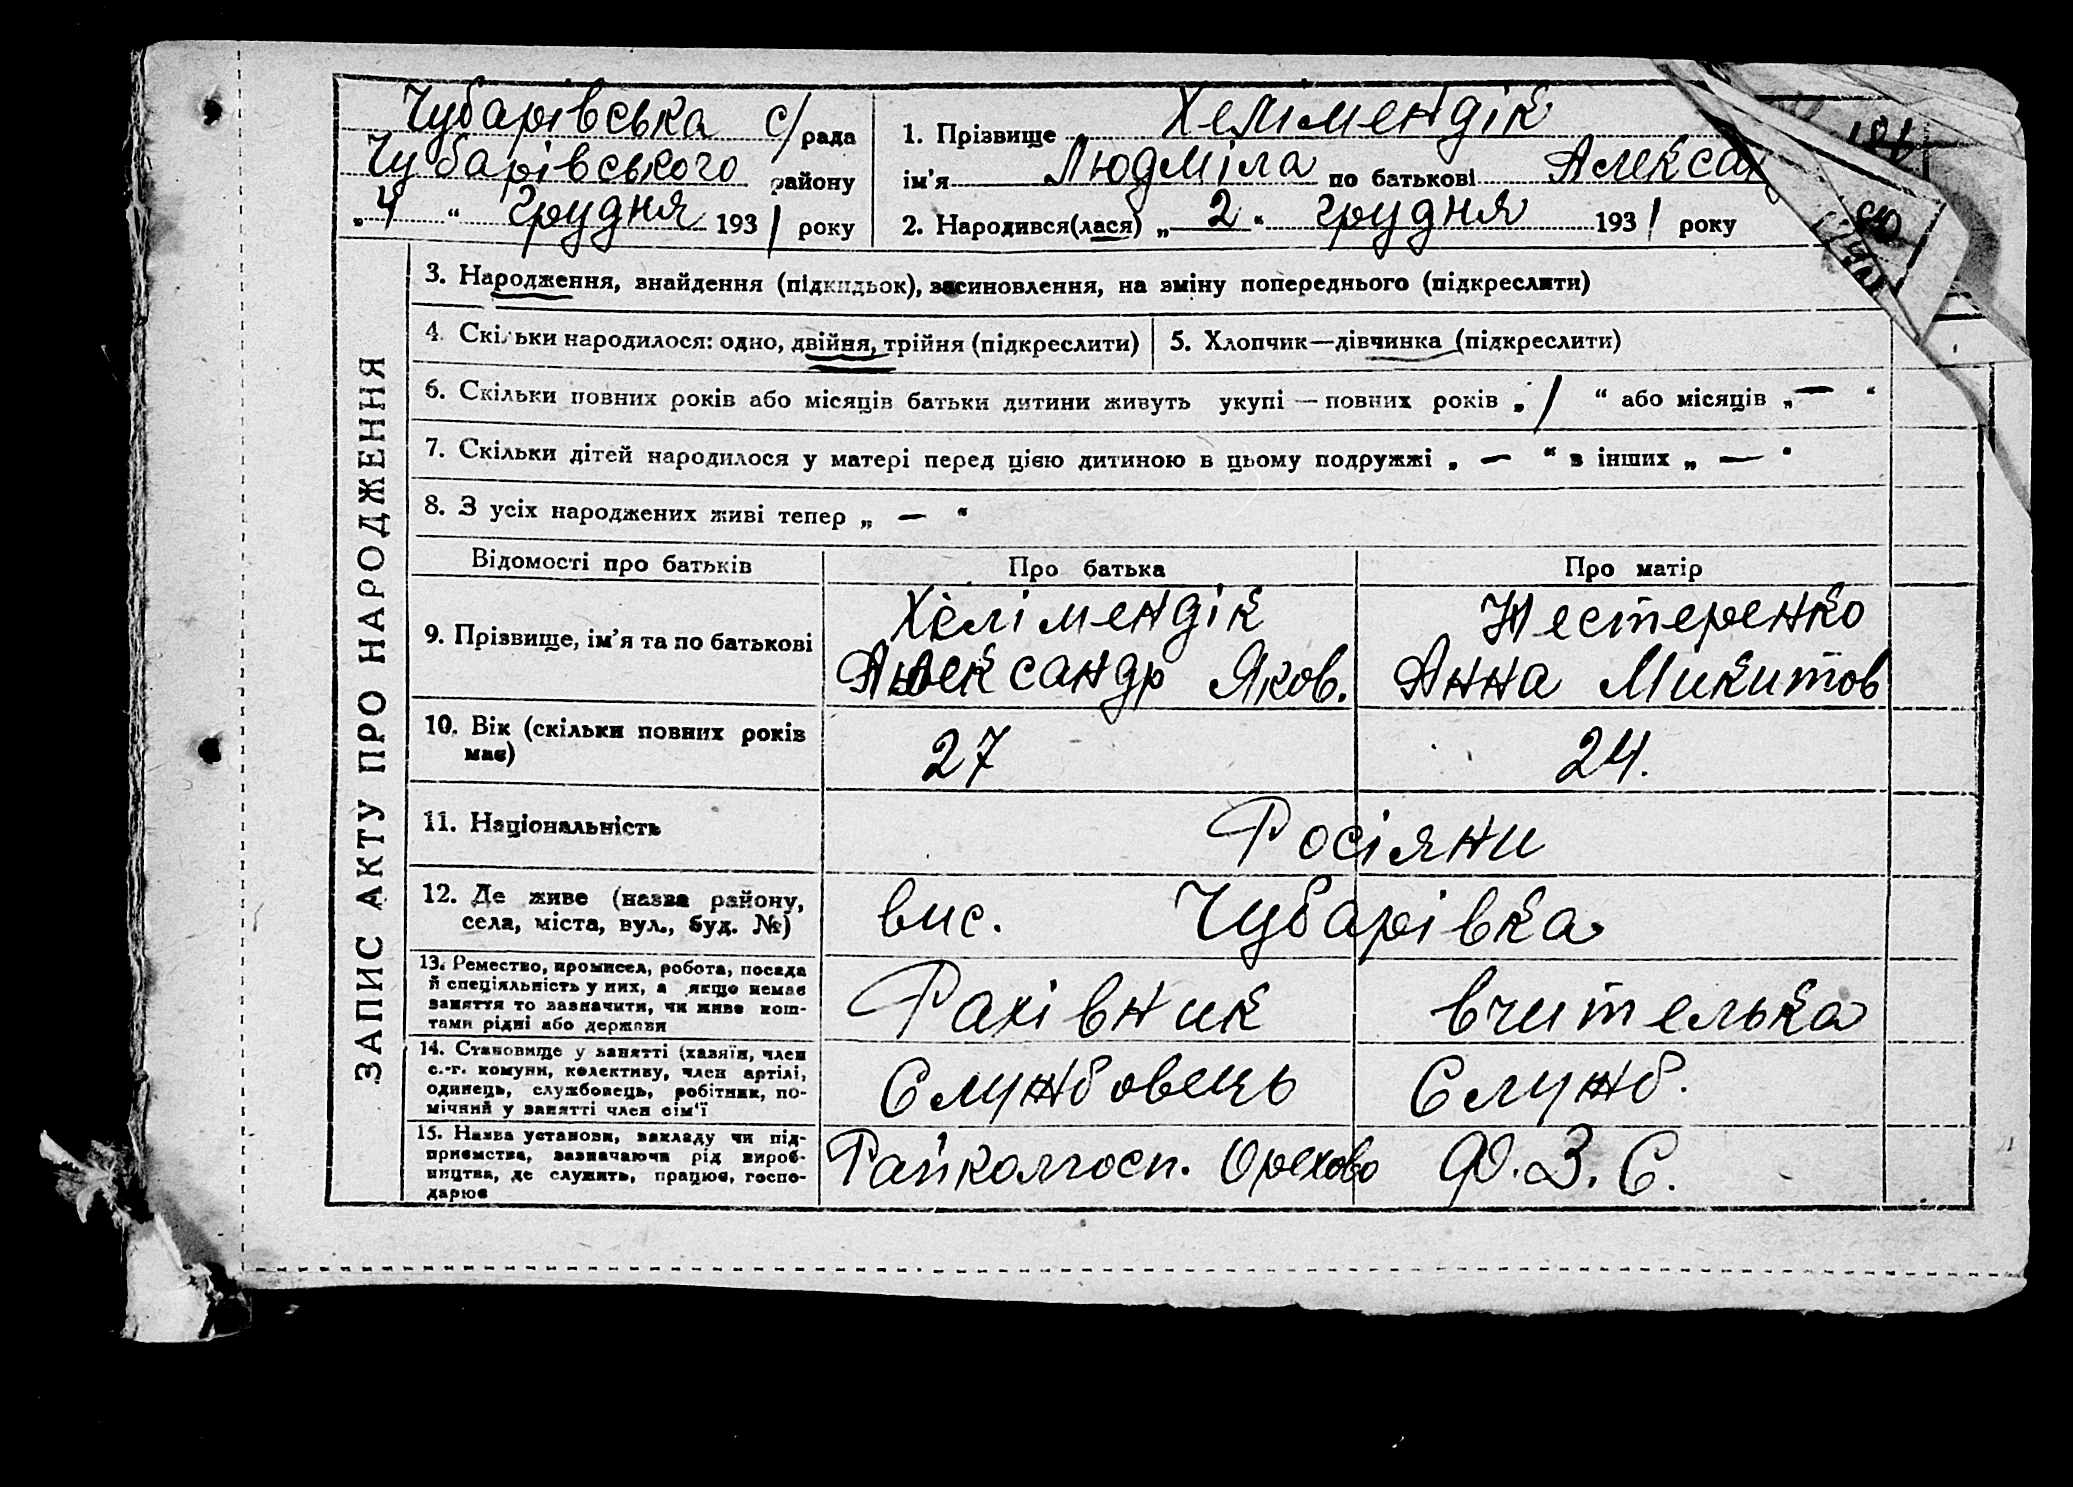 Чубарівська с/рада
Чубарівського району
„4“ Грудня 1931 року
1. Прізвище Хеліменділ
ім’я Людміла по батькові Алекса
2. Народився(лася) „2“ Грудня 1931 року
ЗАПИС АКТУ ПРО НАРОДЖЕННЯ
3. Народження, знайдення (підкидьок), засиновлення, на зміну попереднього (підкреслити)
4. Скільки народилося: одно, двійня, трійня (підкреслити)
5. Хлопчик—дівчинка (підкреслити)
6. Скільки повних років або місяців батьки дитини живуть укупі — повних років „1“ або місяців „—“
7. Скільки дітей народилося у матері перед цією дитиною в цьому подружжі „—“ в інших „—“
8. З усіх народжених живі тепер „—“
Відомості про батьків
Про батька
Про матір
9. Прізвище, ім’я та по батькові
Хелімендік
Александр Яков.
Нестеренко
Анна Микитов
10. Вік (скільки повних років
має)
27
24.
11. Національність
Росіяни
12. Де живе (назва району,
села, міста, вул., буд. №)
вис. Чубарівка
13. Ремество, промисел, робота, посада
й спеціяльність у них, а якщо немає
заняття то зазначити, чи живе кош-
тами рідні або держави
Рахівник
вчителька
14. Становище у занятті (хазяїн, член
с.-г. комуни, колективу, член артілі,
одинець, службовець, робітник, по-
мічний у занятті член сім’ї
Службовець
Служб.
15. Назва установи, закладу чи під-
приємства, зазначаючи рід вироб-
ництва, де служить, працює, госпо-
дарює
Райколгосп. Орехово
Ф.З.С.